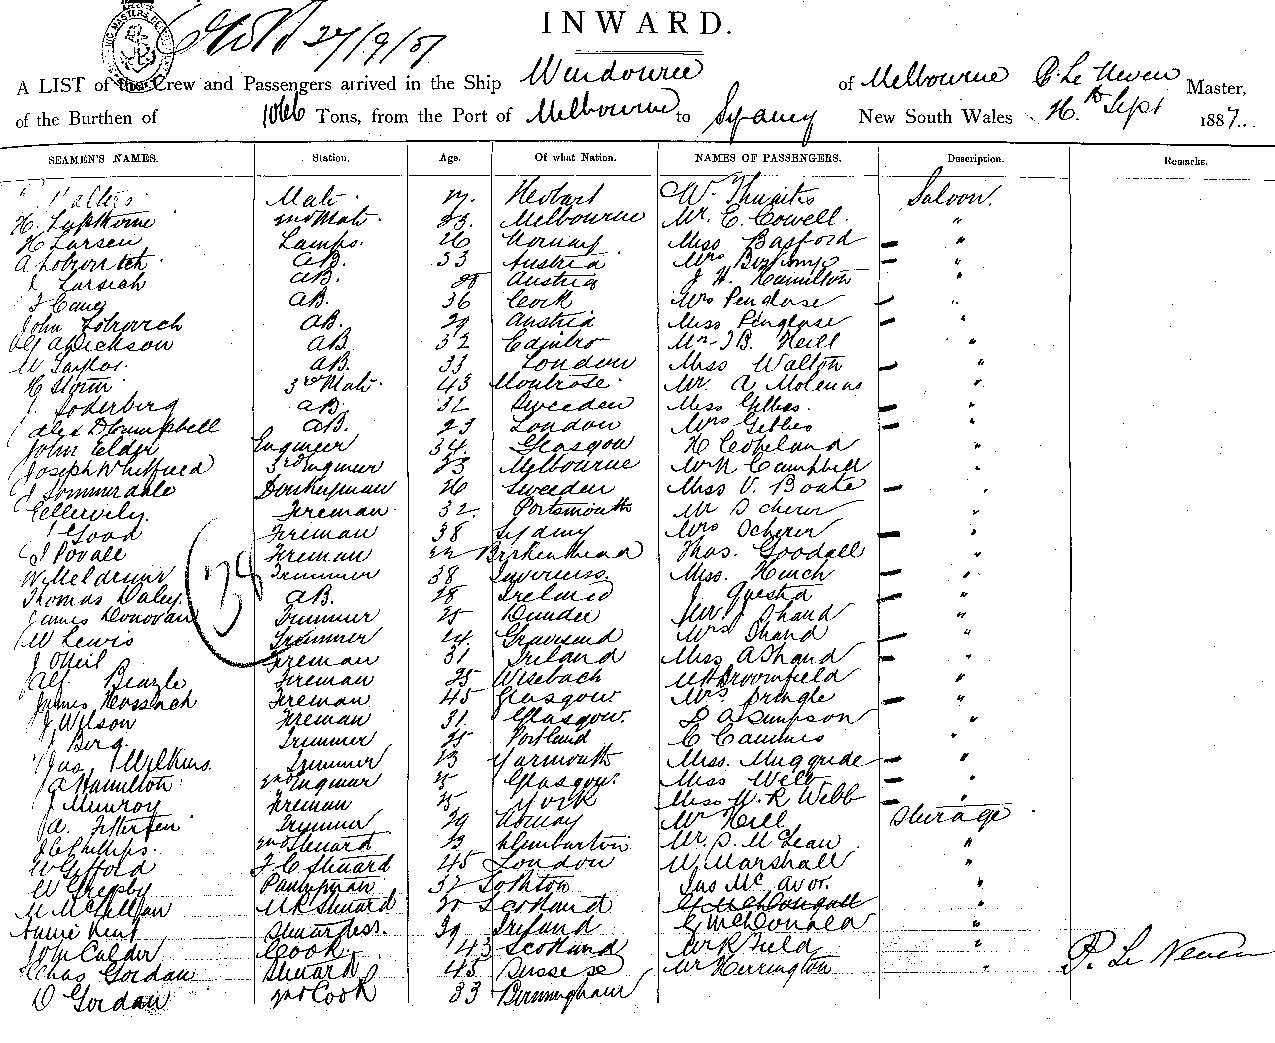 INWARD.
27/9/87
A LIST of the Crew and Passengers arrived in the Ship Windouree of Melbourne P. Le Neven Master,
of the Burthen of Tons, from the Port of Melbourne to Sydney New South Wales Sept 1887.
SEAMEN'S NAMES. Station. Age. Of what Nation. NAMES OF PASSENGERS. Description. Remarks.
Mate 27. Hobart W. Thwaites Saloon
H. 2nd Mate 23. Melbourne Mr. E. Cowell. "
H Larsen Lamps. 26 Norway Miss Basford "
A AB. 33 Austria Mrs "
Larsich AB. 28 Austria J. H. Hamilton "
AB. 36 Cork Mrs Penglase "
John AB. 29 Austria Miss Penglase "
Dickson AB. 32 Mr J B. Neill "
W Taylor. AB. 33 London Miss Walton "
H Storm 3rd Mate 43 Montrose. Mr. A "
J. Soderberg AB. 32 Sweeden Miss Gillies. "
Alex D Campbell AB. 23 London Mrs Gillies "
John Elder Engineer 34. Glasgow H Copeland "
Joseph Whitfield 3rd Engineer 23 Melbourne W. N Campbell "
J Sommerdale Donkeyman 26 Sweeden Miss V. Boake "
Fireman 32. Portsmouth Mr Scherer "
Good Fireman 38 Sydney Mrs Scherer "
J Povall Fireman Birkenhead Thos. Goodall "
W. Meldrum Trimmer 38 Inverness. Miss. Hinch "
Thomas Daley. AB. 28 Ireland J "
James Donovan Trimmer 25 Dundee Mr J Shand "
W Lewis Trimmer 24. Gravesend Mrs Shand "
J. ONeil Fireman 31 Ireland Miss A Shand "
Alf Beazle Fireman 25 Wisebach Broomfield "
James Fireman 45 Glasgow. Mrs Pringle "
J. Wilson Fireman 31. Glasgow. D A Simpson "
J Berg Trimmer 25 Portland C Cammis "
Jas Wilkins. Trimmer 23 Yarmouth Miss. Muggride "
A Hamilton 2nd Engineer Glasgow. Miss Webb "
J Munroy Fireman York Miss W. R Webb "
A. Trimmer 29 Norway Mr Hill Steerage
J C Phillips. 2nd Steward 23 Dumbarton Mr. D. McLean "
W Gifford F. C Steward 45 London W. Marshall "
W Gregsby Pantryman 37 Jas Mc Avor. "
M McLellan Steward Scotland "
Annie Kent Stewardess. 39 Ireland G McDonald "
John Calder Cook 43 Scotland Mr R Field "
Chas Gordan Steward 45 Mr Herrington "
D Gordan 2nd Cook 33 Birmingham
P. Le Neven